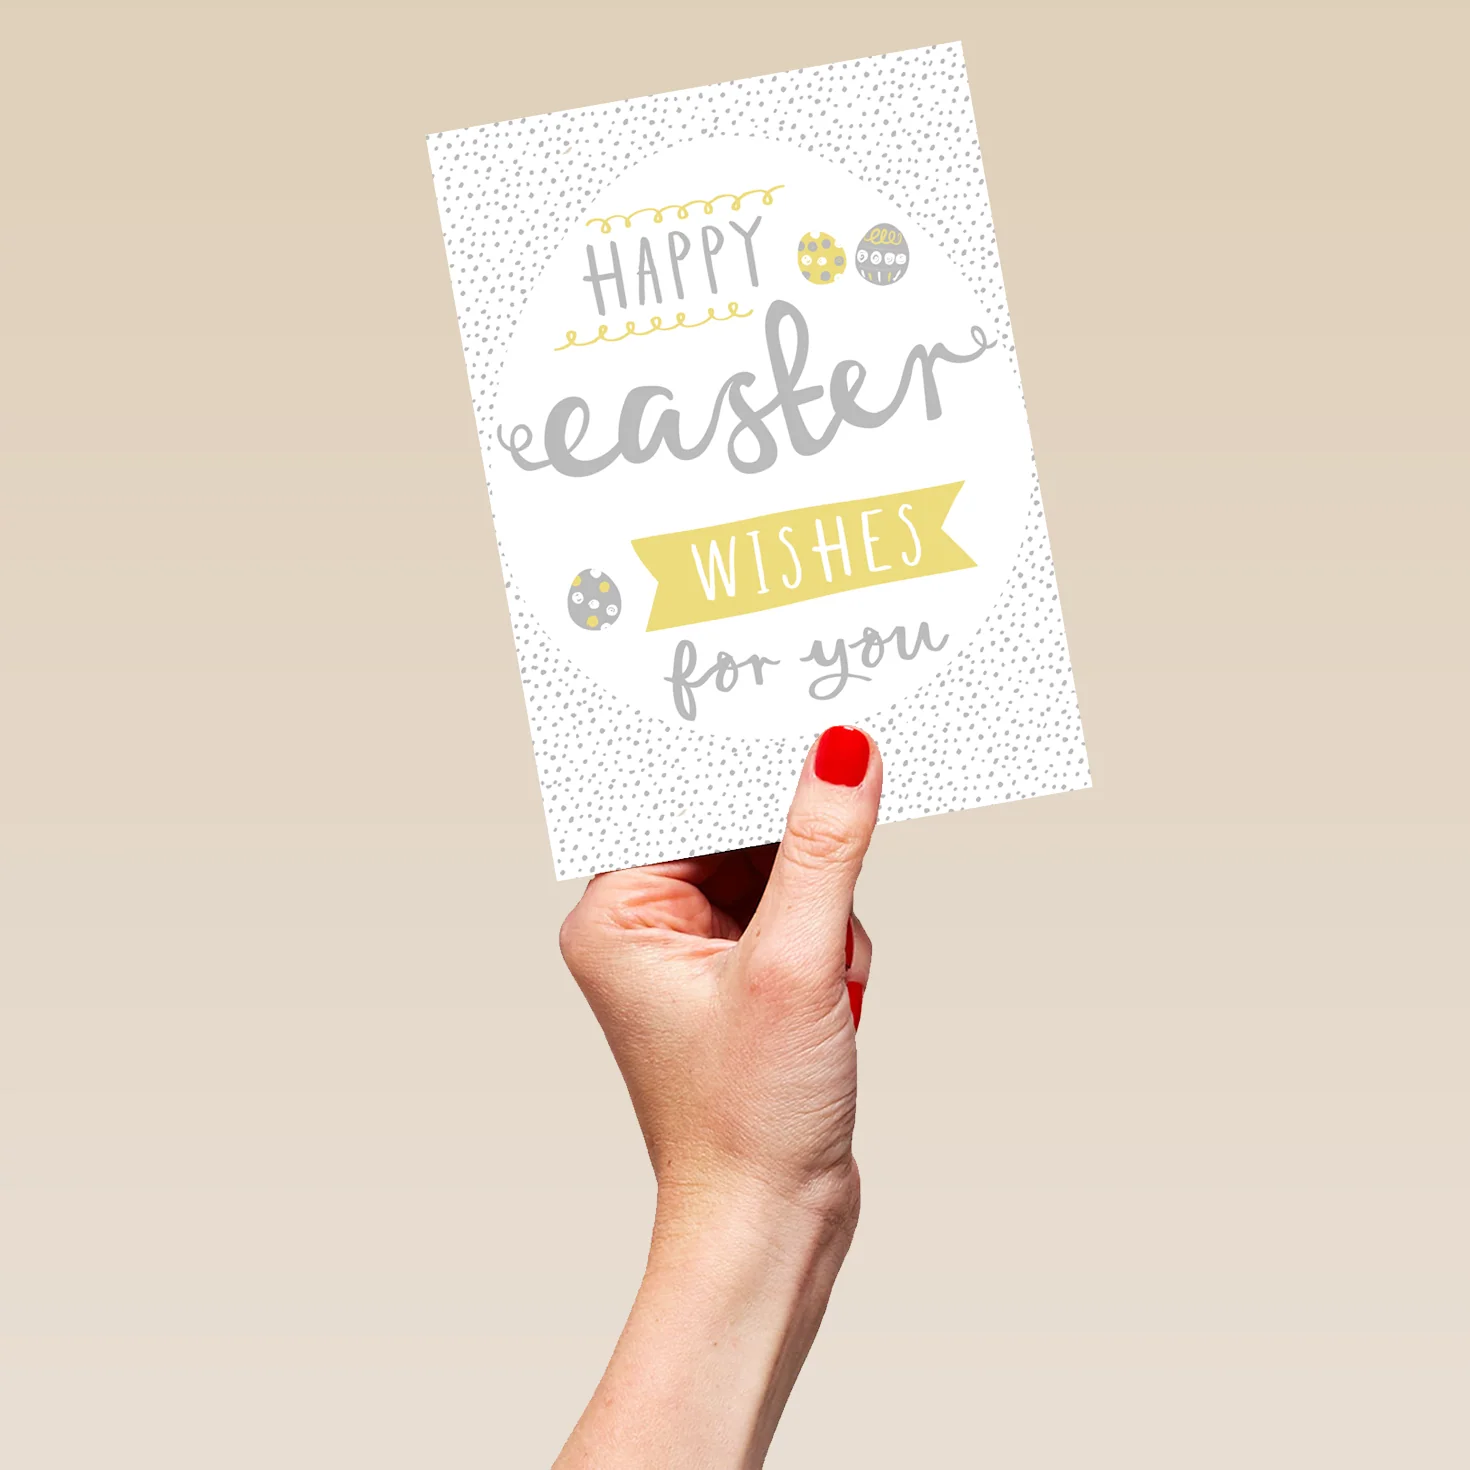 HAPPY
easter
WISHES
for you